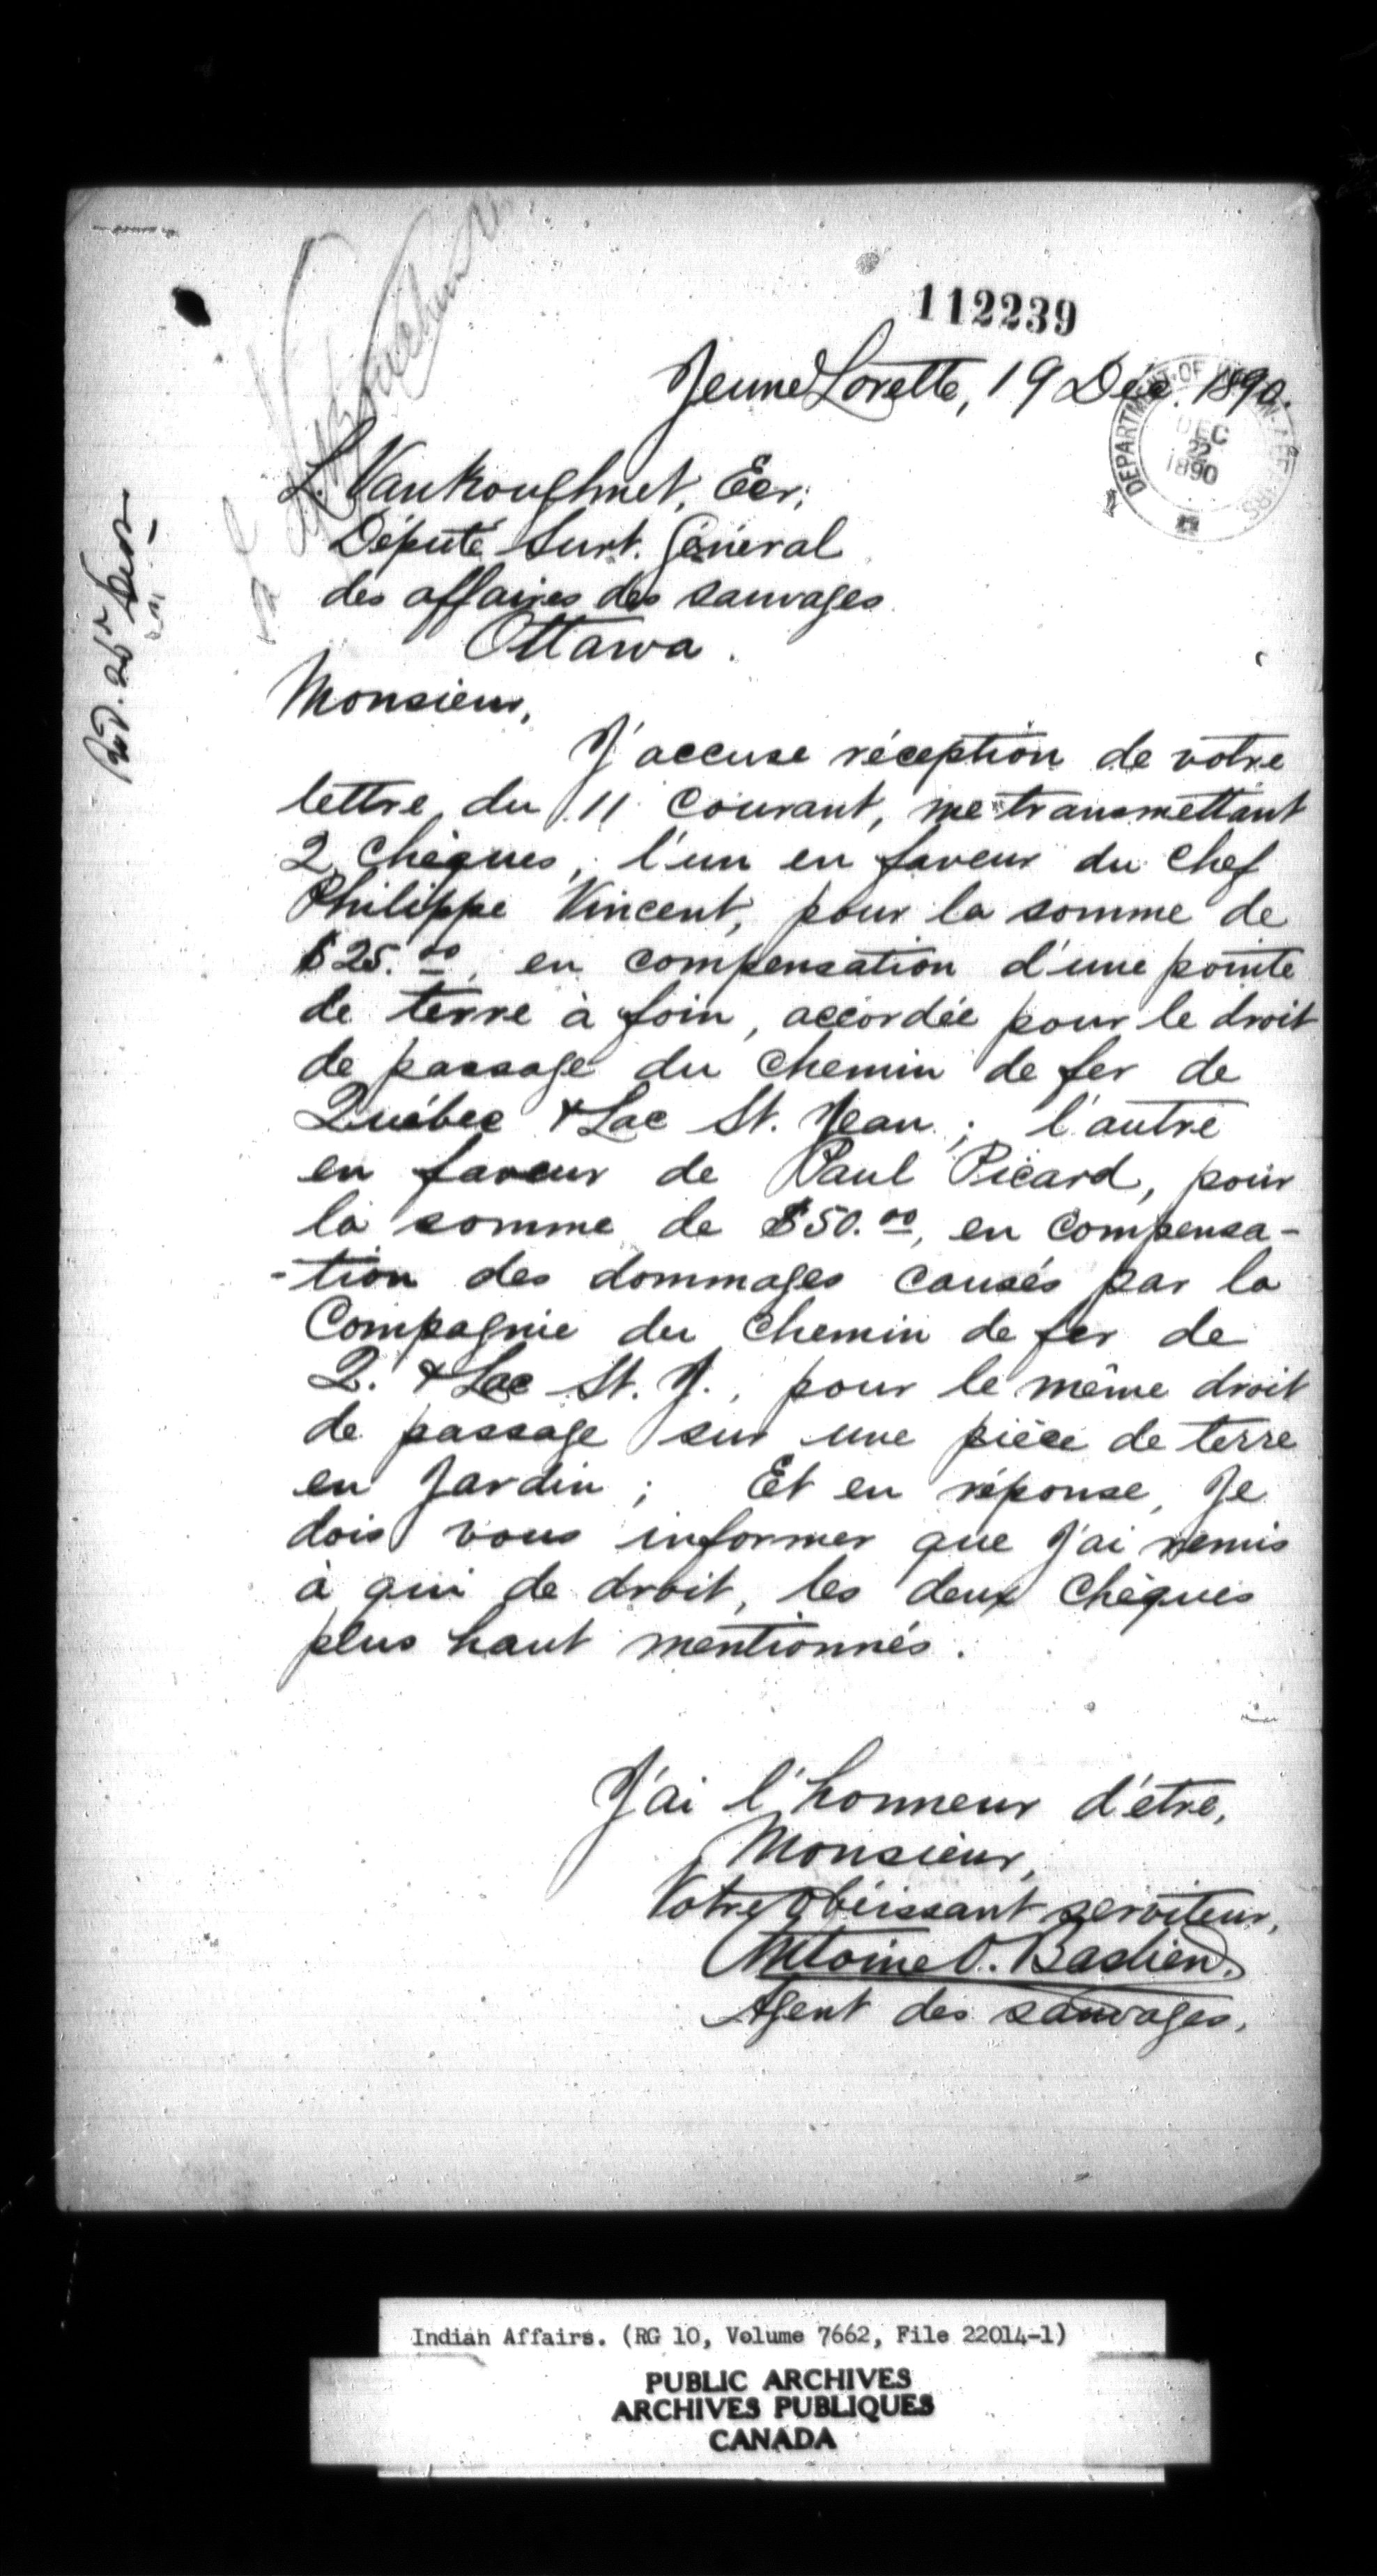 112239
Jeune Lorette, 19 Déc. 1890.
DEPARTMENT OF INDIAN AFFAIRS
DEC
22
1890
L. VanKoughnet, Ecr,
Député Surt. Général
des affaires des sauvages
Ottawa.
Monsieur,
J'accuse réception de votre
lettre du 11 courant, me transmettant
2 chèques, l'un en faveur du chef
Philippe Vincent, pour la somme de
$25.00, en compensation d'une pointe
de terre à foin, accordée pour le droit
de passage du chemin de fer de
Québec & Lac St. Jean ; l'autre
en faveur de Paul Picard, pour
la somme de $50.00, en compensa-
-tion des dommages causés par la
Compagnie du chemin de fer de
Q. & Lac St. J., pour le même droit
de passage sur une pièce de terre
en Jardin ; Et en réponse, Je
dois vous informer que J'ai remis
à qui de droit, les deux chèques
plus haut mentionnés.
J'ai l'honneur d'être,
Monsieur,
Votre obéissant serviteur,
Antoine O. Bastien.
Agent des sauvages.
Indian Affairs. (RG 10, Volume 7662, File 22014-1)
PUBLIC ARCHIVES
ARCHIVES PUBLIQUES
CANADA